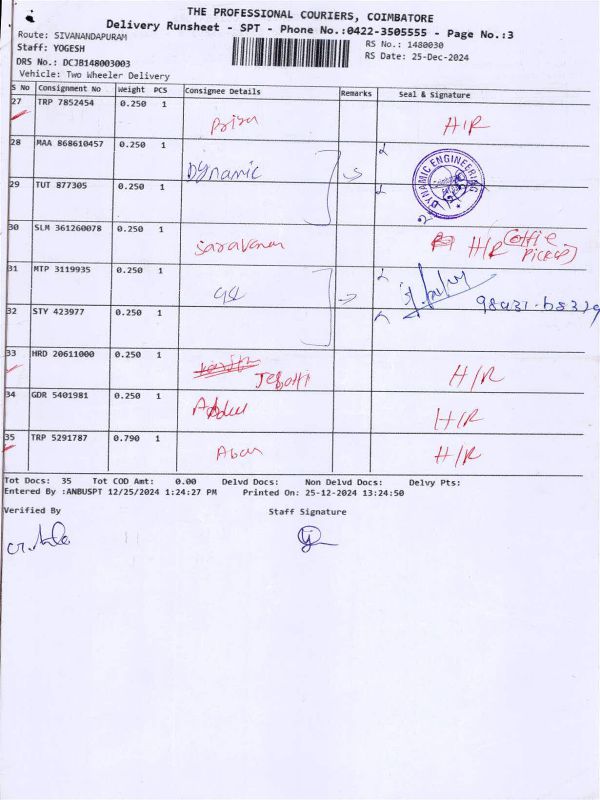 THE PROFESSIONAL COURIERS, COIMBATORE
Delivery Runsheet - SPT - Phone No.:0422-3505555 - Page No.:3
Route: SIVANANDAPURAM
RS No.: 1480030
Staff: YOGESH
RS Date: 25-Dec-2024
DRS No.: DCJB148003003
Vehicle: Two Wheeler Delivery
S No Consignment No Weight PCS Consignee Details Remarks Seal & Signature
27 TRP 7852454 0.250 1 H/R
28 MAA 868610457 0.250 1 Dynamic
DYNAMIC ENGINEERING
29 TUT 877305 0.250 1
30 SLM 361260078 0.250 1 Saravanan H/R (Office Pickup)
31 MTP 3119935 0.250 1
32 STY 423977 0.250 1
33 HRD 20611000 0.250 1 H/R
34 GDR 5401981 0.250 1 Abdul H/R
35 TRP 5291787 0.790 1 H/R
Tot Docs: 35 Tot COD Amt: 0.00 Delvd Docs: Non Delvd Docs: Delvy Pts:
Entered By :ANBUSPT 12/25/2024 1:24:27 PM Printed On: 25-12-2024 13:24:50
Verified By Staff Signature